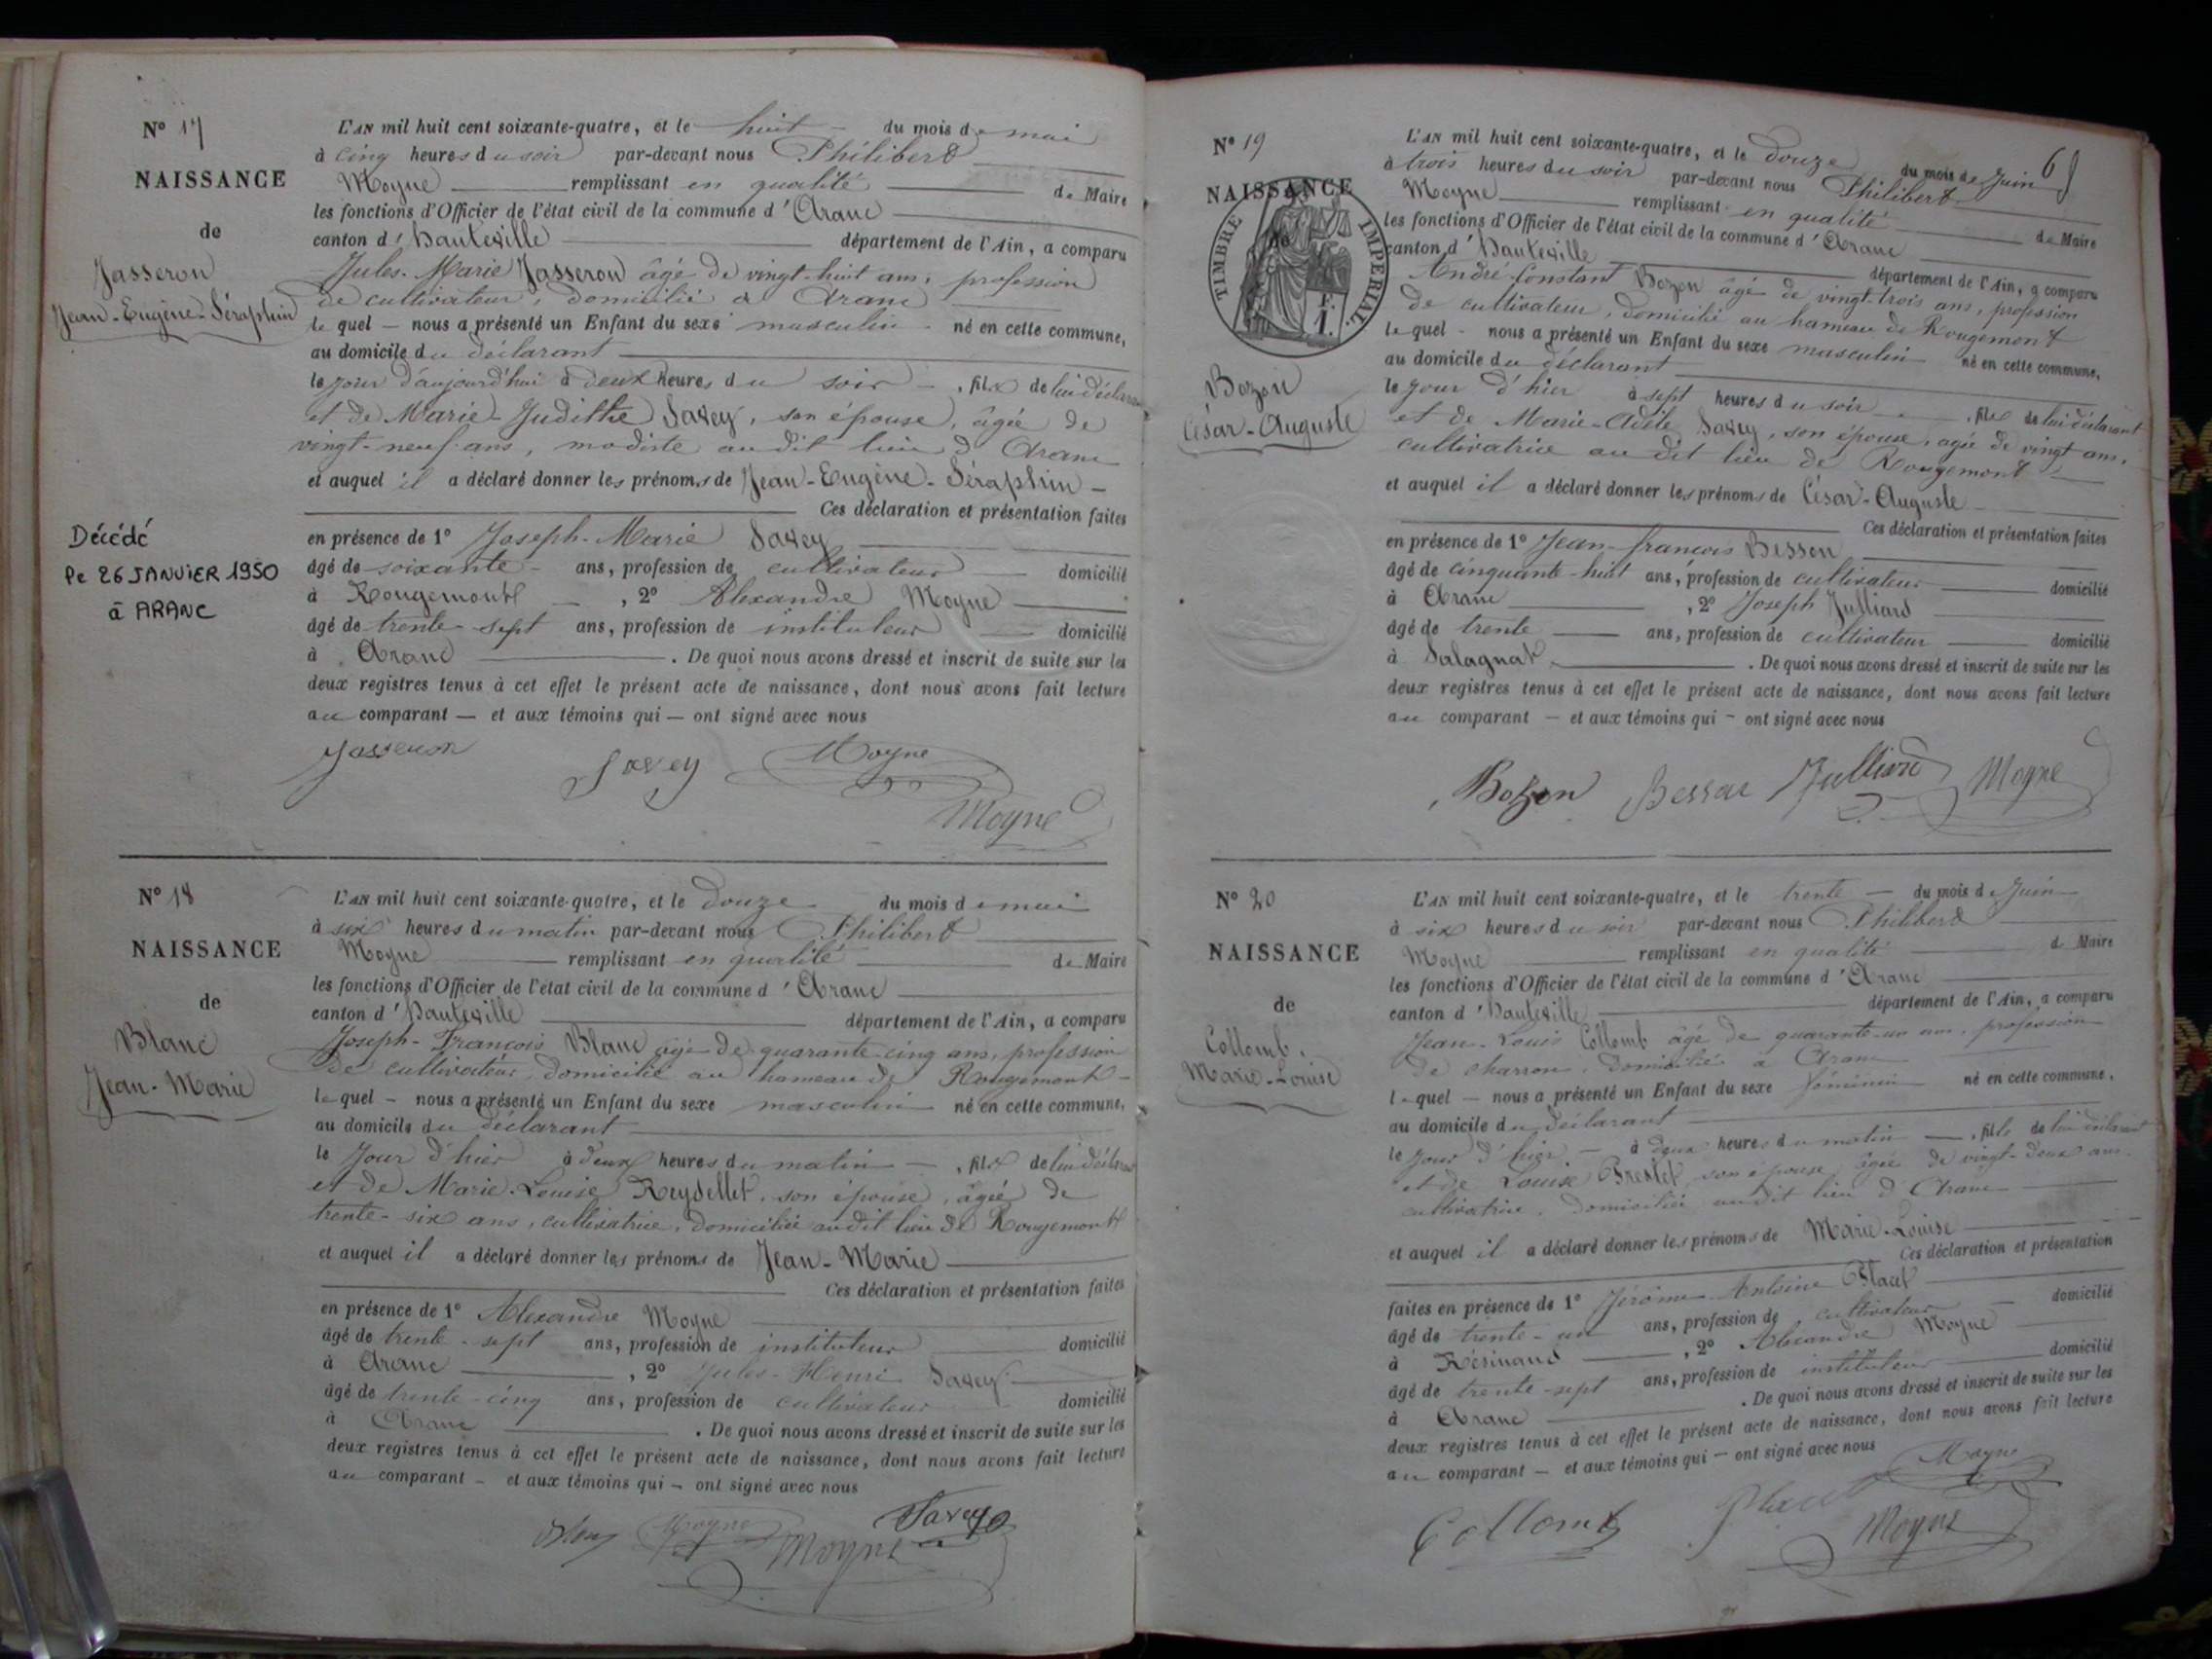 N° 17
NAISSANCE
de
Jasseron
Jean-Eugène-Séraphin
Décédé
le 26 JANVIER 1950
à ARANC
L'AN mil huit cent soixante-quatre, et le huit du mois de mai
à cinq heures du soir par-devant nous Philibert
Moyne remplissant en qualité de Maire
les fonctions d'Officier de l'état civil de la commune d'Aranc
canton d'Hauteville département de l'Ain, a comparu
Jules-Marie Jasseron âgé de vingt-huit ans, profession
de cultivateur, domicilié à Aranc
le quel — nous a présenté un Enfant du sexe masculin né en cette commune,
au domicile du déclarant
le jour d'aujourd'hui à deux heures du soir —, fils de lui déclarant
et de Marie-Judithe Savey, son épouse, âgée de
vingt-neuf ans, modiste au dit lieu d'Aranc
et auquel il a déclaré donner les prénoms de Jean-Eugène-Séraphin —
Ces déclaration et présentation faites
en présence de 1° Joseph-Marie Savey
âgé de soixante ans, profession de cultivateur domicilié
à Rougemont, 2° Alexandre Moyne
âgé de trente-sept ans, profession de instituteur domicilié
à Aranc. De quoi nous avons dressé et inscrit de suite sur les
deux registres tenus à cet effet le présent acte de naissance, dont nous avons fait lecture
au comparant — et aux témoins qui — ont signé avec nous
Jasseron Savey Moyne
Moyne
N° 18
NAISSANCE
de
Blanc
Jean-Marie
L'AN mil huit cent soixante-quatre, et le douze du mois de mai
à six heures du matin par-devant nous Philibert
Moyne remplissant en qualité de Maire
les fonctions d'Officier de l'état civil de la commune d'Aranc
canton d'Hauteville département de l'Ain, a comparu
Joseph-François Blanc âgé de quarante-cinq ans, profession
de cultivateur, domicilié au hameau de Rougemont —
le quel — nous a présenté un Enfant du sexe masculin né en cette commune,
au domicile du déclarant
le jour d'hier à deux heures du matin —, fils de lui déclarant
et de Marie-Louise Reydellet, son épouse, âgée de
trente-six ans, cultivatrice, domiciliée au dit lieu de Rougemont
et auquel il a déclaré donner les prénoms de Jean-Marie
Ces déclaration et présentation faites
en présence de 1° Alexandre Moyne
âgé de trente-sept ans, profession de instituteur domicilié
à Aranc, 2° Jules-Henri Savey
âgé de trente-cinq ans, profession de cultivateur domicilié
à Aranc. De quoi nous avons dressé et inscrit de suite sur les
deux registres tenus à cet effet le présent acte de naissance, dont nous avons fait lecture
au comparant — et aux témoins qui — ont signé avec nous
Blanc Moyne Moyne Savey
69
N° 19
NAISSANCE
de
TIMBRE IMPÉRIAL
1 F.
Bozon
César-Auguste
L'AN mil huit cent soixante-quatre, et le douze du mois de Juin
à trois heures du soir par-devant nous Philibert
Moyne remplissant en qualité de Maire
les fonctions d'Officier de l'état civil de la commune d'Aranc
canton d'Hauteville département de l'Ain, a comparu
André-Constant Bozon âgé de vingt-trois ans, profession
de cultivateur, domicilié au hameau de Rougemont
le quel — nous a présenté un Enfant du sexe masculin né en cette commune,
au domicile du déclarant
le jour d'hier à sept heures du soir, fils de lui déclarant
et de Marie-Adèle Savey, son épouse, âgée de vingt ans,
cultivatrice au dit lieu de Rougemont
et auquel il a déclaré donner les prénoms de César-Auguste
Ces déclaration et présentation faites
en présence de 1° Jean-françois Besson
âgé de cinquante-huit ans, profession de cultivateur domicilié
à Aranc, 2° Joseph Julliard
âgé de trente ans, profession de cultivateur domicilié
à Salagnat. De quoi nous avons dressé et inscrit de suite sur les
deux registres tenus à cet effet le présent acte de naissance, dont nous avons fait lecture
au comparant — et aux témoins qui — ont signé avec nous
Bozon Besson Julliard Moyne
N° 20
NAISSANCE
de
Collomb.
Marie-Louise
L'AN mil huit cent soixante-quatre, et le trente — du mois de Juin
à six heures du soir par-devant nous Philibert
Moyne remplissant en qualité de Maire
les fonctions d'Officier de l'état civil de la commune d'Aranc
canton d'Hauteville département de l'Ain, a comparu
Jean-Louis Collomb âgé de quarante-un ans, profession
de charron, domicilié à Aranc
lequel — nous a présenté un Enfant du sexe féminin né en cette commune,
au domicile du déclarant
le jour d'hier — à deux heures du matin —, fille de lui déclarant
et de Louise son épouse, âgée de vingt-deux ans
cultivatrice, domiciliée au dit lieu d'Aranc
et auquel il a déclaré donner les prénoms de Marie-Louise
Ces déclaration et présentation
faites en présence de 1° Jérôme-Antoine Placet
âgé de trente-un ans, profession de cultivateur domicilié
à Résinand, 2° Alexandre Moyne
âgé de trente-sept ans, profession de instituteur domicilié
à Aranc. De quoi nous avons dressé et inscrit de suite sur les
deux registres tenus à cet effet le présent acte de naissance, dont nous avons fait lecture
au comparant — et aux témoins qui — ont signé avec nous
Collomb Placet Moyne
Moyne